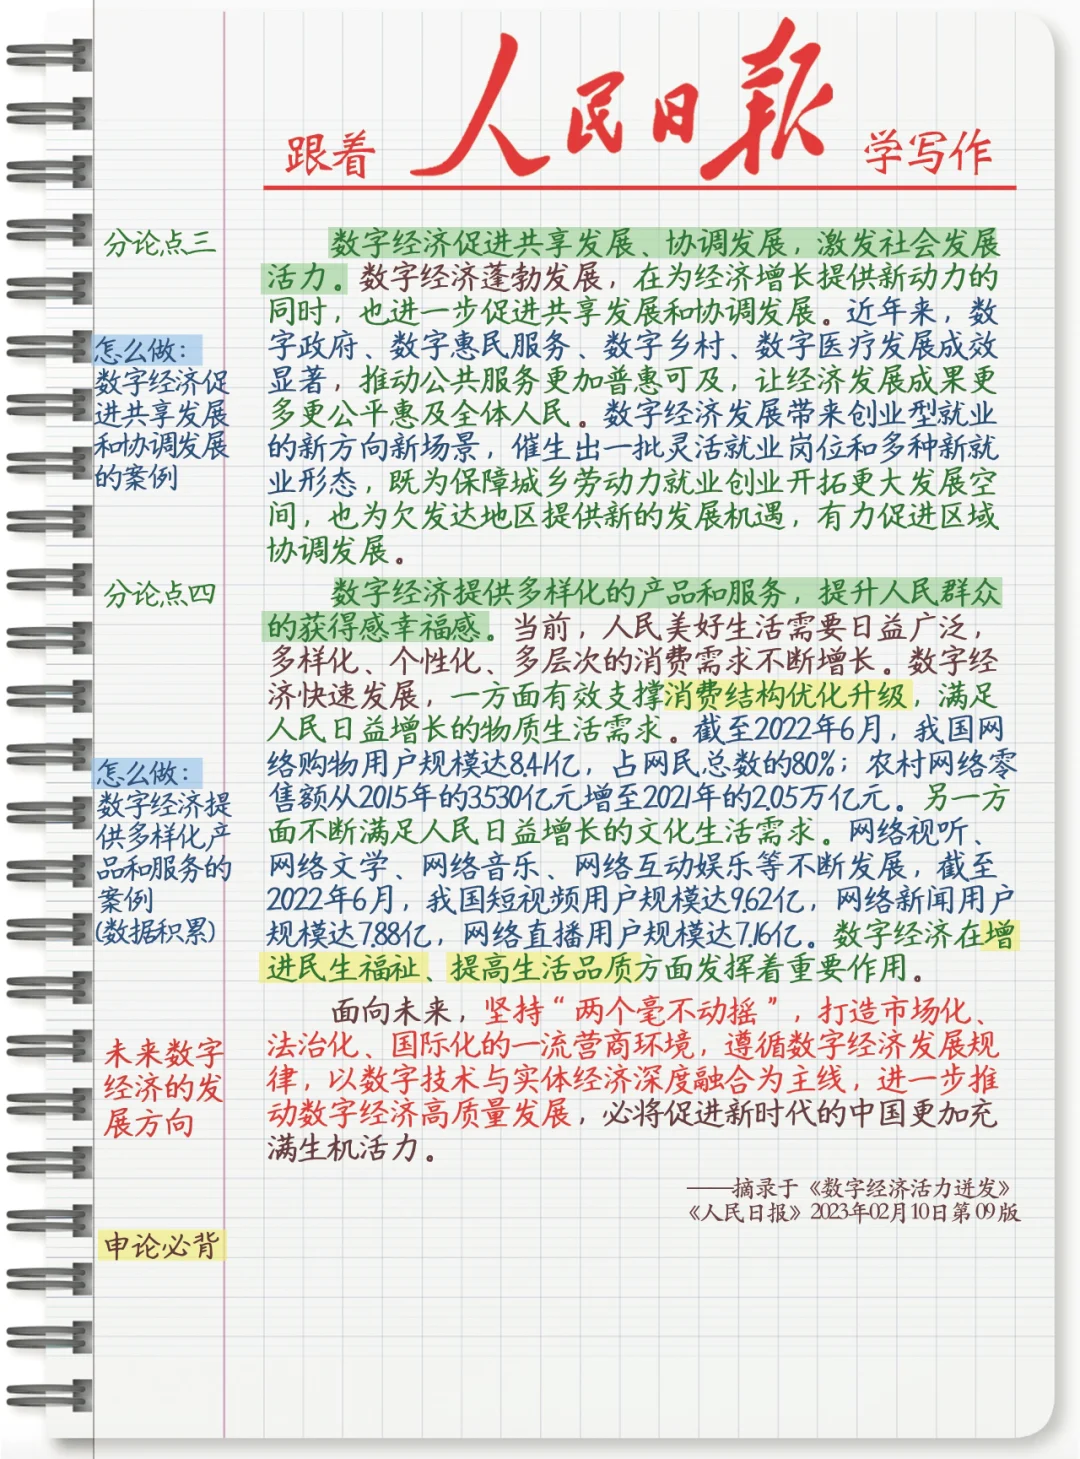 跟着人民日报学写作
分论点三
数字经济促进共享发展、协调发展，激发社会发展
活力。数字经济蓬勃发展，在为经济增长提供新动力的
同时，也进一步促进共享发展和协调发展。近年来，数
字政府、数字惠民服务、数字乡村、数字医疗发展成效
显著，推动公共服务更加普惠可及，让经济发展成果更
多更公平惠及全体人民。数字经济发展带来创业型就业
的新方向新场景，催生出一批灵活就业岗位和多种新就
业形态，既为保障城乡劳动力就业创业开拓更大发展空
间，也为欠发达地区提供新的发展机遇，有力促进区域
协调发展。
怎么做：
数字经济促
进共享发展
和协调发展
的案例
分论点四
数字经济提供多样化的产品和服务，提升人民群众
的获得感幸福感。当前，人民美好生活需要日益广泛，
多样化、个性化、多层次的消费需求不断增长。数字经
济快速发展，一方面有效支撑消费结构优化升级，满足
人民日益增长的物质生活需求。截至2022年6月，我国网
络购物用户规模达8.41亿，占网民总数的80%；农村网络零
售额从2015年的3530亿元增至2021年的2.05万亿元。另一方
面不断满足人民日益增长的文化生活需求。网络视听、
网络文学、网络音乐、网络互动娱乐等不断发展，截至
2022年6月，我国短视频用户规模达9.62亿，网络新闻用户
规模达7.88亿，网络直播用户规模达7.16亿。数字经济在增
进民生福祉、提高生活品质方面发挥着重要作用。
怎么做：
数字经济提
供多样化产
品和服务的
案例
(数据积累)
面向未来，坚持“两个毫不动摇”，打造市场化、
法治化、国际化的一流营商环境，遵循数字经济发展规
律，以数字技术与实体经济深度融合为主线，进一步推
动数字经济高质量发展，必将促进新时代的中国更加充
满生机活力。
未来数字
经济的发
展方向
——摘录于《数字经济活力迸发》
《人民日报》2023年02月10日第09版
申论必背